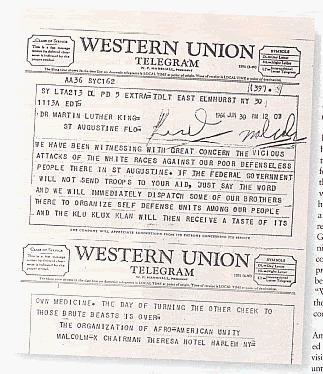 WESTERN UNION
TELEGRAM
W. P. MARSHALL, PRESIDENT
CLASS OF SERVICE
SYMBOLS
AA36 SYC162
(39).
SY LTA213 DL PD 5 EXTRA TDLT EAST ELMHURST NY 30
1113A EDT
1964 JUN 30 PM 12 03
DR MARTIN LUTHER KING
ST AUGUSTINE FLO
WE HAVE BEEN WITNESSING WITH GREAT CONCERN THE VICIOUS
ATTACKS OF THE WHITE RACES AGAINST OUR POOR DEFENSELESS
PEOPLE THERE IN ST AUGUSTINE. IF THE FEDERAL GOVERNMENT
WILL NOT SEND TROOPS TO YOUR AID, JUST SAY THE WORD
AND WE WILL IMMEDIATELY DISPATCH SOME OF OUR BROTHERS
THERE TO ORGANIZE SELF DEFENSE UNITS AMONG OUR PEOPLE
AND THE KLU KLUX KLAN WILL THEN RECEIVE A TASTE OF ITS
THE COMPANY WILL APPRECIATE SUGGESTIONS FROM ITS PATRONS CONCERNING ITS SERVICE
CLASS OF SERVICE
WESTERN UNION
TELEGRAM
W. P. MARSHALL, PRESIDENT
SYMBOLS
OWN MEDICINE. THE DAY OF TURNING THE OTHER CHEEK TO
THOSE BRUTE BEASTS IS OVER.
THE ORGANIZATION OF AFRO-AMERICAN UNITY
MALCOLM-X CHAIRMAN THERESA HOTEL HARLEM NY